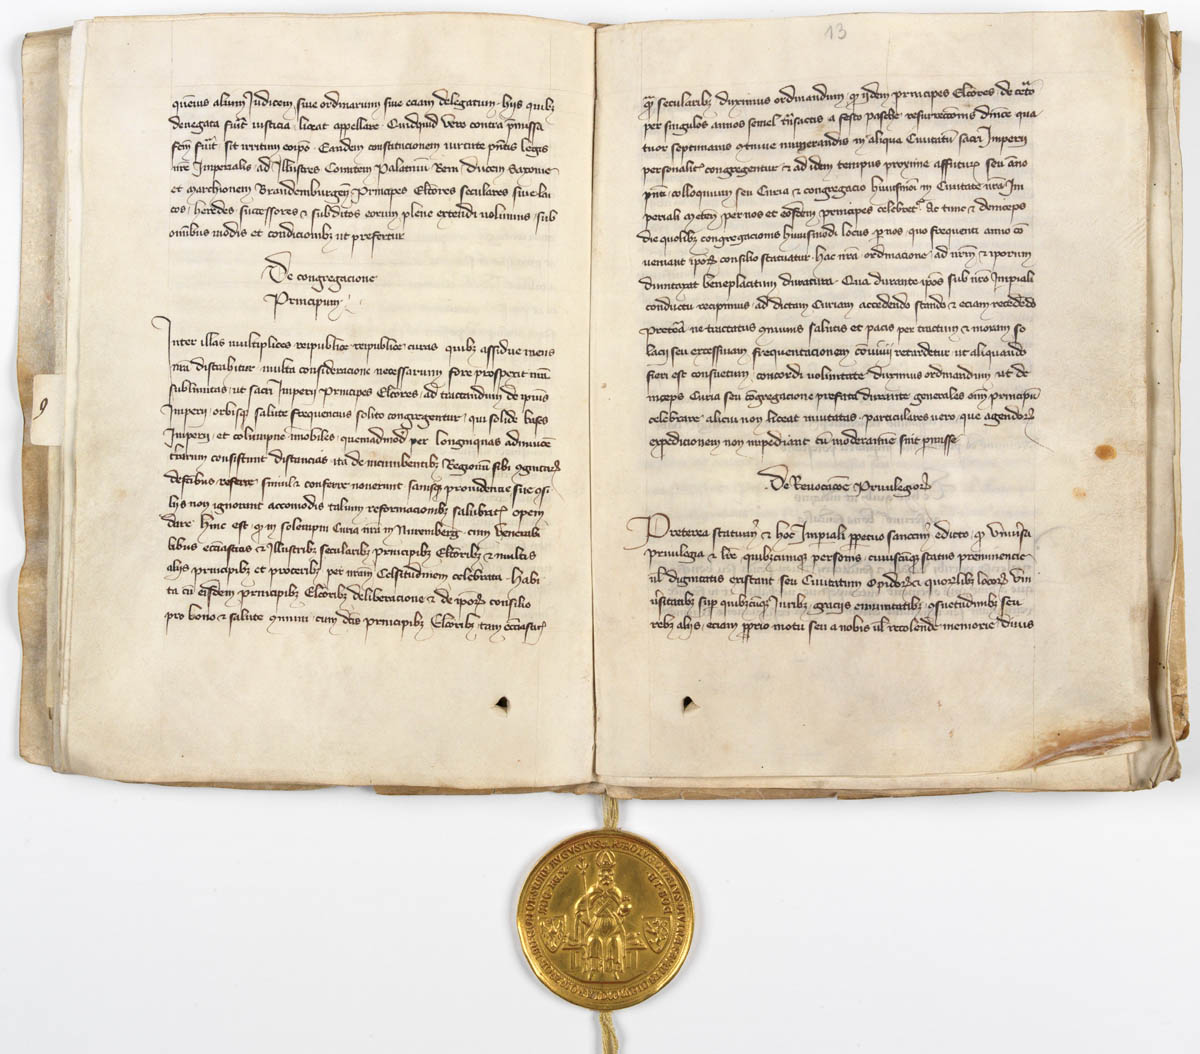 quemvis alium Judicem, sive ordinarium sive eciam delegatum. hijs quibꝫ
denegata fu͛it iusticia, liceat appellare. Quidquid vero contra p̄missa
fc̄m fu͛it sit irritum eoip̄o. Eandem constitucionem virtute p̄ntis legis
nr̄e Imperialis ad Illustres Comitem Palatinū Reni Ducem Saxonie
et Marchionem Brandemburgeñ Principes Elc̄ores seculares sive lai
cos, heredes successores & subditos eorum plene extendi volumus, sub
omībus modis et condicionibꝫ ut prefertur
De congregacione
Principum
Inter illas multiplices reipublice reipublice curas quibꝫ assidue mens
nr̄a distrahitur multa consideracione necessarium fore prospexit nr̄a
sublimitas, ut sacri Imperii Principes Elc̄ores, ad tractandum de ipius
Imperii orbisqꝫ salute frequencius solito congregentur, qui solide bases
Imperii, et columpne im̄obiles, quemadmodū per longinquas adinuicē
terrarum consistunt distancias, ita de incumbentibꝫ Regionū sibi ꝯgnitarꝝ
defc̄ibus referre simul & conferre noverunt sanisqꝫ providencie sue ꝯsi
lijs non ignorant accomodis talium reformacionibꝫ salubriter opem
dare. Hinc est, ꝙ in solempni Curia nr̄a in Nuremberg, cum Venerabi
libus ecc̄iasticis & Illustribꝫ secularibꝫ principibꝫ Elc̄oribꝫ & multis
alijs principibꝫ et proceribꝫ per nr̄am Celsitudinem celebrata. habi
ta cū eisdem principibꝫ Elc̄oribꝫ deliberacione & de ip̄orꝝ consilio
pro bono & salute ꝯmuni cum dc̄is principibꝫ Elc̄oribꝫ tam ecc̄iasticis
qm̄ secularibꝫ duximus ordinandum, ꝙ ijdem principes Elc̄ores de cet͛o
per singulos annos semel tn̄sactis a festo pasche resurrecc̄onis dn̄ice qua
tuor septimanis ꝯtinue numerandis in aliqua Civitatū sacri Imperii
personaliter congregentur & ad idem tempus proxime affuturū seu an̄o
pn̄ti, colloquium seu Curia & congregacio huiusmōi in Civitate nr̄a Im
periali Meten̄ per nos et eosdem principes celebretur. Ac tunc & deinceps
die quolibꝫ congregacionis huiusmodi locus, ꝑ nos, quo sequenti anno cō
veniant ip̄orꝝ consilio statuatur. hac nr̄a ordinacione, ad nr̄m & ip̄orum
dumtaxat beneplacitum duratura. Qua durante ip̄os sub nr̄o Imp̄iali
conductu recipimus, ad dictam Curiam accedendo stando & eciam recedēdo
Preterea ne tractatus ꝯmunis salutis et pacis per tractum & moram so
lacii seu excessivam frequentacionem convivii retardetur ut aliquando
fieri est consuetum, concordi voluntate duximus ordinandum ut de
inceps Curia seu cōgregacione prefata durante generales om̄i principū
celebrare alicui non liceat invitatas. particulares vero, que agendorꝝ
expedicionem non impediant cū moderamīe sint pm̄isse
De Revocac̄oe Privilegiorꝝ
Preterea statuimꝰ & hoc Imp̄iali ꝑpetuo sanccimꝰ edicto, ꝙ Univ͛sa
privilegia & lr̄e quibuscūqꝫ personis, cuiuscūqꝫ status preeminencie
ul̄ dignitatis existant seu Civitatum Opidorꝝ & quorūlibꝫ locorꝝ Uni
v͛sitatibꝫ sup̄ quibuscūqꝫ Juribꝫ graciis emunitatibꝫ ꝯsuetudinibꝫ seu
rebꝫ alijs, eciam ꝓprio motu seu a nobis ul̄ recolende memorie divis
13
9